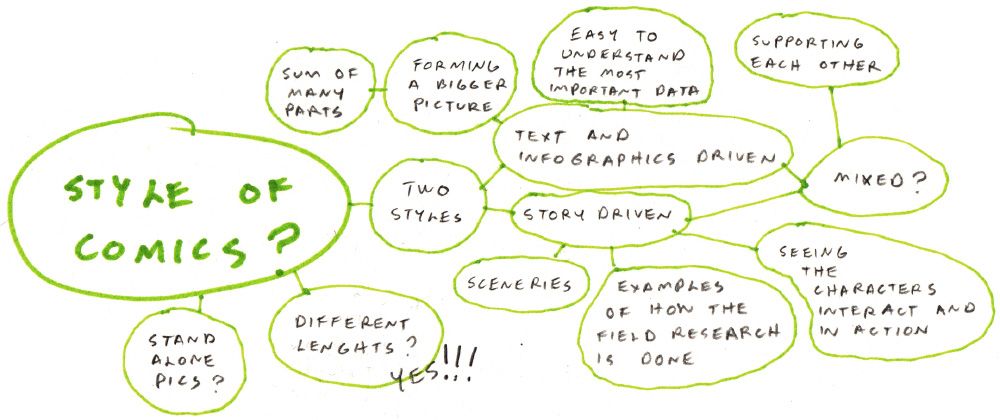 STYLE OF
COMICS?
STAND
ALONE
PICS?
DIFFERENT
LENGHTS?
YES!!!
TWO
STYLES
TEXT AND
INFOGRAPHICS DRIVEN
FORMING
A BIGGER
PICTURE
SUM OF
MANY
PARTS
EASY TO
UNDERSTAND
THE MOST
IMPORTANT DATA
STORY DRIVEN
SCENERIES
EXAMPLES
OF HOW THE
FIELD RESEARCH
IS DONE
SEEING
THE
CHARACTERS
INTERACT AND
IN ACTION
MIXED?
SUPPORTING
EACH OTHER